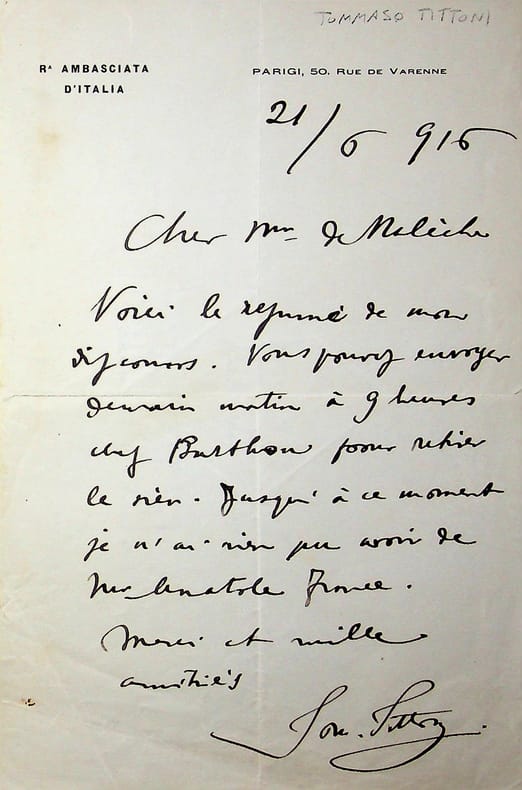 TOMMASO TITTONI
Rᴬ AMBASCIATA
D'ITALIA
PARIGI, 50. RUE DE VARENNE
21/6 916
Cher Mr de
Voici le resumé de mon
discours. Vous pouvez envoyer
demain matin à 9 heures
chez Barthou pour retirer
le sien. Jusqu'à ce moment
je n'ai rien pu avoir de
Mr Anatole France.
Merci et mille
amitiés
Tom. Tittoni